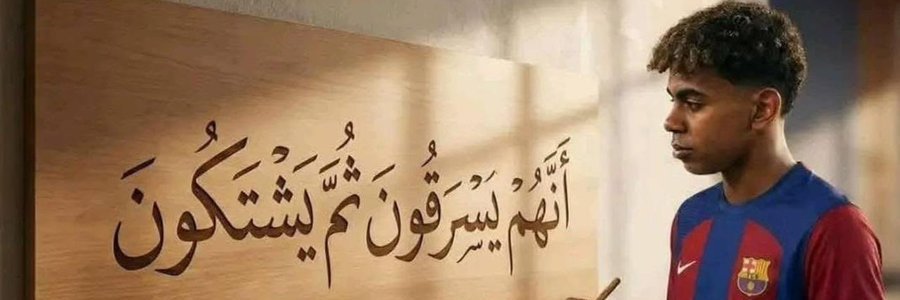 أَنَّهُمْ يَسْرَقُونَ ثُمَّ يَشْتَكُونَ